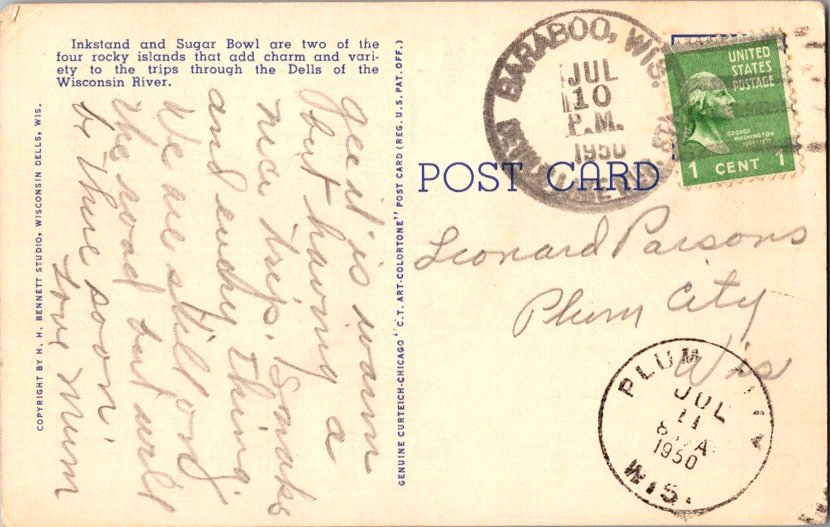 Inkstand and Sugar Bowl are two of the
four rocky islands that add charm and vari-
ety to the trips through the Dells of the
Wisconsin River.
COPYRIGHT BY H. H. BENNETT STUDIO, WISCONSIN DELLS, WIS.
gee it's warm
but having a
nice trip. Smoke
and every thing.
We are still on
the road but will
be thue soon.
Love Mum
GENUINE CURTEICH-CHICAGO "C.T. ART-COLORTONE" POST CARD (REG. U.S. PAT. OFF.)
POST CARD
BARABOO, WIS.
JUL
10
P.M.
1950
UNITED
STATES
POSTAGE
GEORGE
WASHINGTON
1 CENT 1
Leonard Parsons
Plum City
Wis
PLUM CITY
JUL
11
A
1950
WIS.